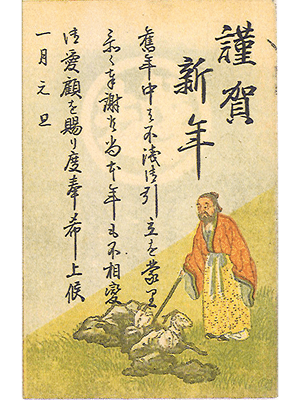 謹賀
新年
舊年中ハ不淺御引立を蒙里
忝く奉謝候尚本年も不相變
御愛顧を賜り度奉希上候
一月元旦